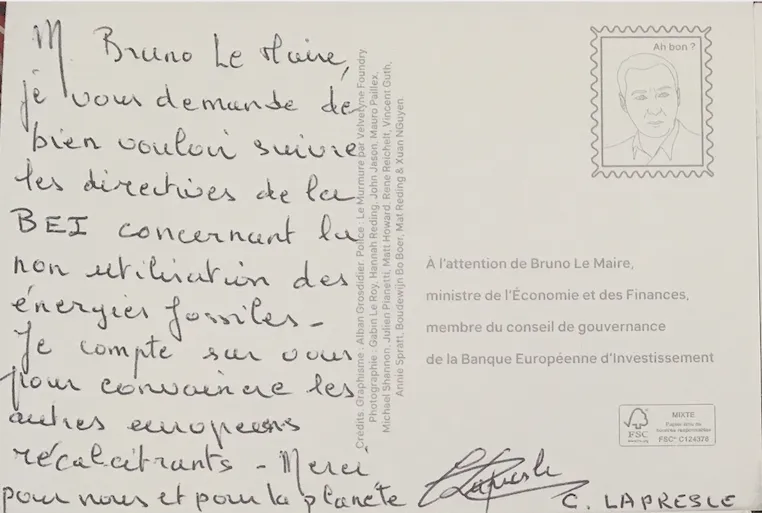 M. Bruno Le Maire,
je vous demande de
bien vouloir suivre
les directives de la
BEI concernant la
non utilisation des
énergies fossiles -
Je compte sur vous
pour convaincre les
autres européens
récalcitrants - Merci
pour nous et pour la planète
Lapresle
C. LAPRESLE
Crédits. Graphisme : Alban Grosdidier, Police : Le Murmure par Velvetyne Foundry
Photographie : Gabin Le Roy, Hannah Reding, John Jason, Mauro Paillex,
Michael Shannon, Julien Pianetti, Matt Howard, Rene Reichelt, Vincent Guth,
Annie Spratt, Boudewijn Bo Boer, Mat Reding & Xuan NGuyen.
Ah bon ?
À l'attention de Bruno Le Maire,
ministre de l'Économie et des Finances,
membre du conseil de gouvernance
de la Banque Européenne d'Investissement
FSC
MIXTE
Papier issu de
sources responsables
FSC® C124370